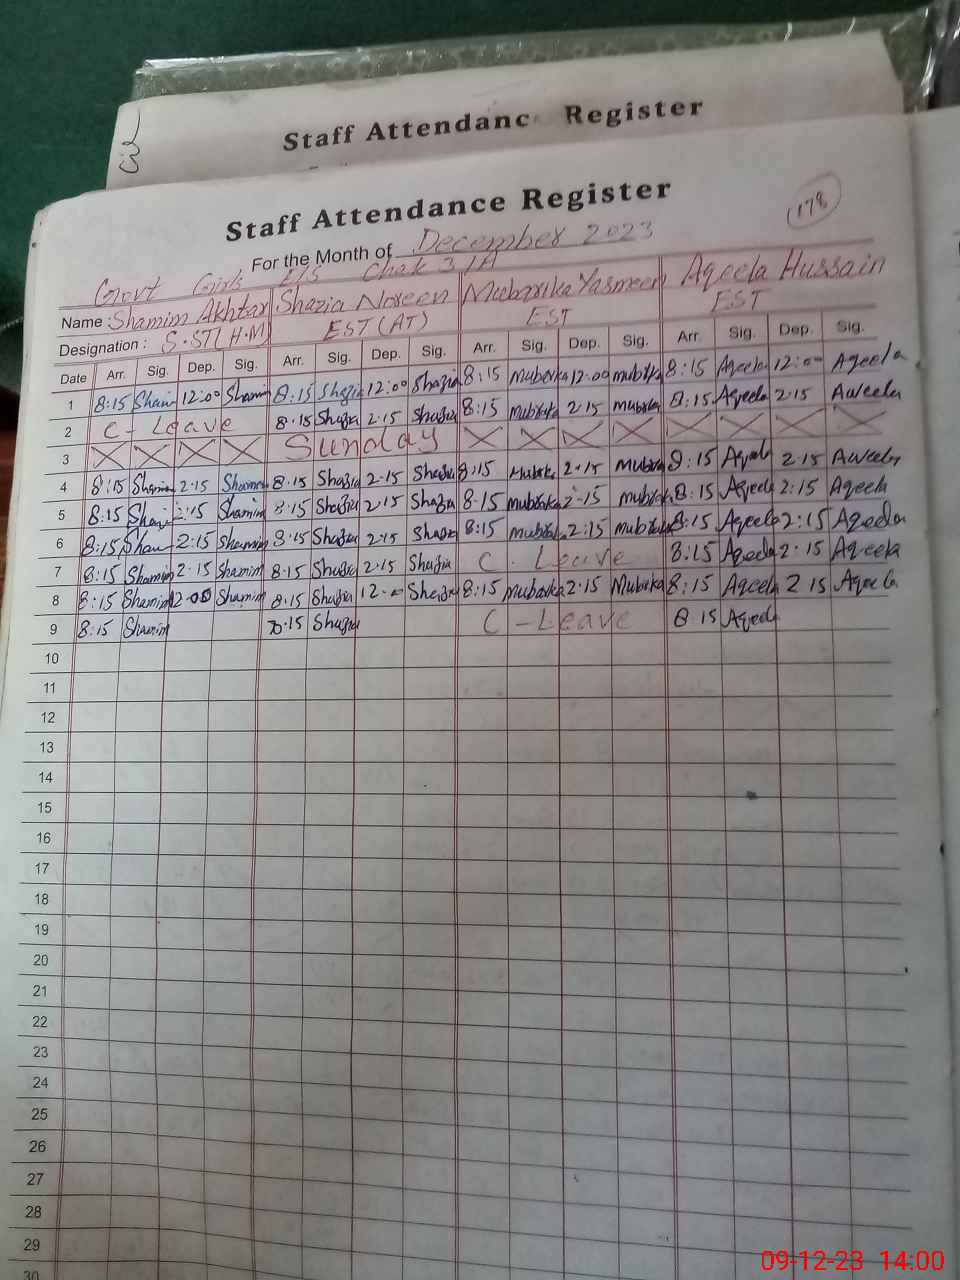 Staff Attendanc Register
Staff Attendance Register
178
For the Month of December 2023
Govt Girls E/S Chak 3/1A
Name : Shamim Akhtar Shazia Noreen Mubarika Yasmeen Aqeela Hussain
Designation : S.ST(H.M) EST(AT) EST EST
Date Arr. Sig. Dep. Sig. Arr. Sig. Dep. Sig. Arr. Sig. Dep. Sig. Arr. Sig. Dep. Sig.
1 8:15 Sham 12:00 Shamim 8:15 Shazia 12:00 Shazia 8:15 Mubarka 12:00 mubarka 8:15 Aqeela 12:00 Aqeela
2 C-Leave 8.15 Shazia 2.15 Shazia 8:15 Mubarka 2.15 Mubarka 8:15 Aqeela 2.15 Aweela
3 Sunday
4 8:15 Shamim 2.15 Shamim 8.15 Shazia 2.15 Shazia 8:15 Mubarka 2.15 Mubarka 8:15 Aqeela 2.15 Aweela
5 8:15 Sham 2:15 Shamim 8.15 Shazia 2.15 Shazia 8.15 Mubarka 2.15 mubarka 8:15 Aqeela 2:15 Aqeela
6 8:15 Sham 2:15 Shamim 8.15 Shazia 2.15 Shazia 8:15 Mubarka 2:15 mubarka 8:15 Aqeela 2:15 Aqeela
7 8:15 Shamim 2.15 Shamim 8.15 Shazia 2.15 Shazia C. Leave 8:15 Aqeela 2.15 Aqeela
8 8:15 Shamim 12.00 Shamim 8.15 Shazia 12.00 Shazia 8:15 Mubarka 2.15 Mubarka 8:15 Aqeela 2 15 Aqeela
9 8:15 Shamim 8.15 Shazia C-Leave 8 15 Aqeela
10
11
12
13
14
15
16
17
18
19
20
21
22
23
24
25
26
27
28
29
30
09-12-23 14:00